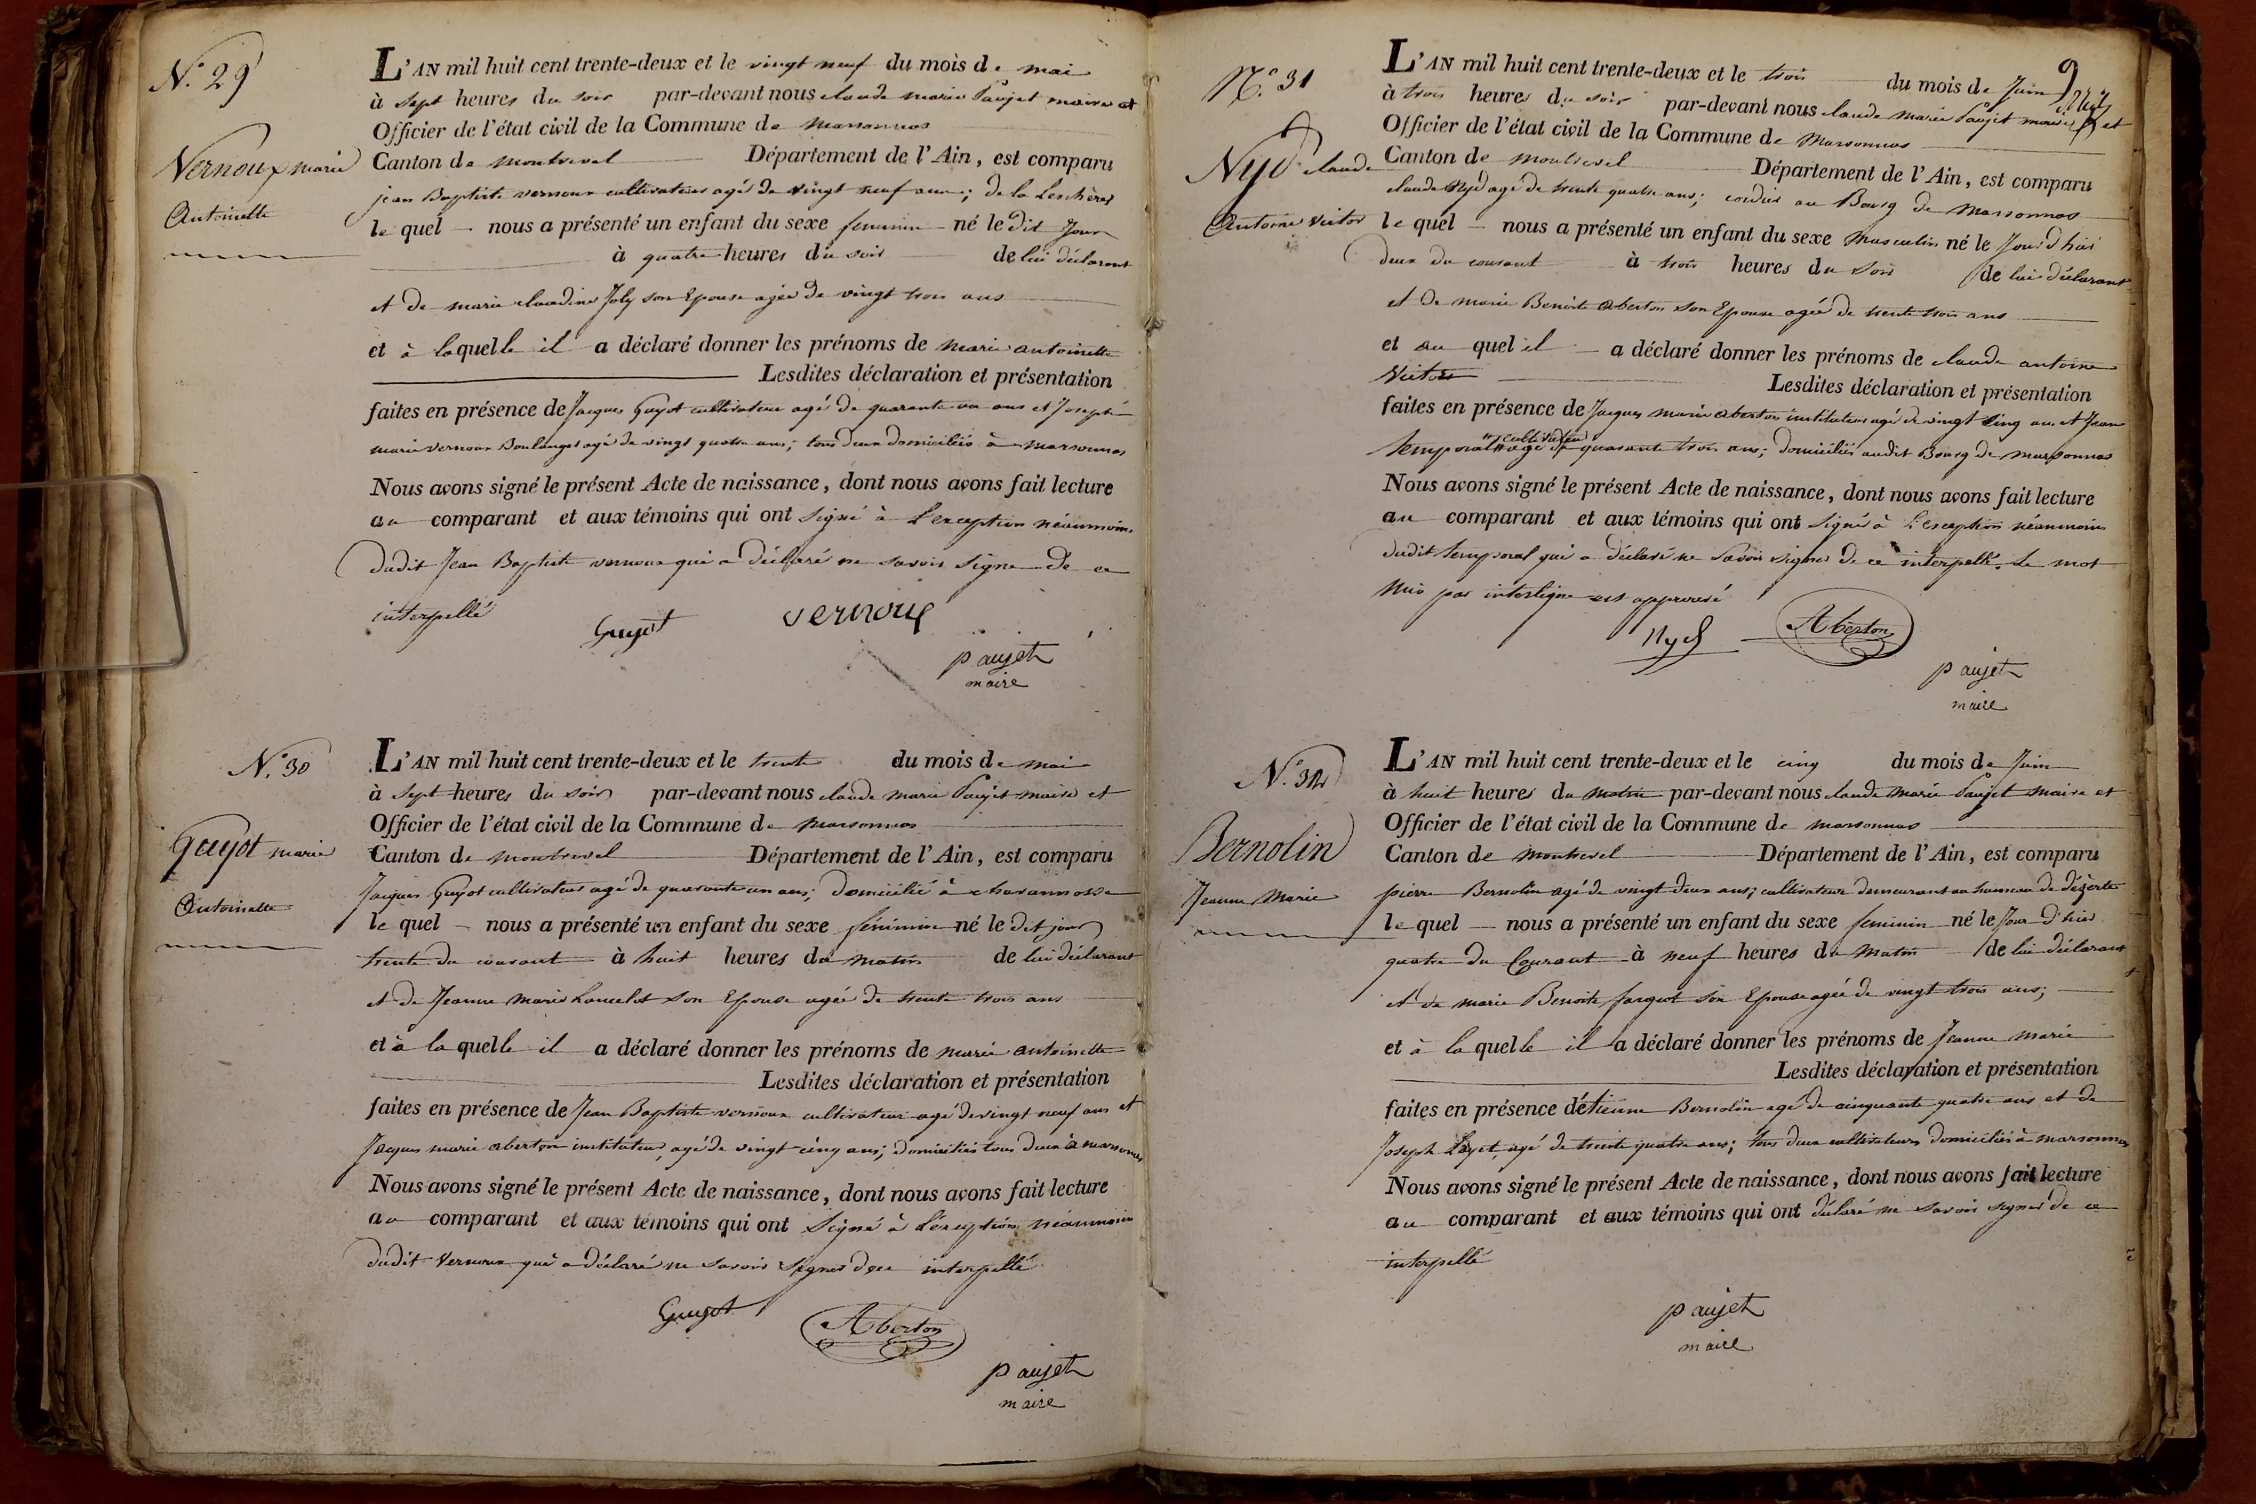 N.° 29
Vernoux marie
Antoinette
L'AN mil huit cent trente-deux et le vingt neuf du mois de mai
à sept heures du soir par-devant nous claude marie Paujet maire et
Officier de l'état civil de la Commune de marsonnas
Canton de montrevel Département de l'Ain, est comparu
jean Baptiste vernoux cultivateur agé de vingt neuf ans; de la Leschère
le quel nous a présenté un enfant du sexe feminin né le dit Jour
à quatre heures du soir de lui déclarant
et de marie claudine Joly son Epouse agée de vingt trois ans
et à laquelle il a déclaré donner les prénoms de marie antoinette
Lesdites déclaration et présentation
faites en présence de Jacques Guyot cultivateur agé de quarante un ans et Joseph
marie vernoux Boulanger agé de vingt quatre ans; tous deux domiciliés à marsonnas
Nous avons signé le présent Acte de naissance, dont nous avons fait lecture
au comparant et aux témoins qui ont signé à l'exception néanmoins
dudit Jean Baptiste vernoux qui a déclaré ne savoir signer de ce
interpellé
Guyot vernoux
paujet
maire
N.° 30
Guyot marie
Antoinette
L'AN mil huit cent trente-deux et le trente du mois de mai
à sept heures du soir par-devant nous claude marie Paujet maire et
Officier de l'état civil de la Commune de marsonnas
Canton de montrevel Département de l'Ain, est comparu
Jacques Guyot cultivateur agé de quarante un ans; domicilié à
le quel nous a présenté un enfant du sexe féminin né le dit jour
trente du courant à huit heures du matin de lui déclarant
et de Jeanne Marie Lancelot son Epouse agée de trente trois ans
et à la quelle il a déclaré donner les prénoms de marie antoinette
Lesdites déclaration et présentation
faites en présence de Jean Baptiste vernoux cultivateur agé de vingt neuf ans et
Jacques marie aberton instituteur, agé de vingt cinq ans; domiciliés tous deux à marsonnas
Nous avons signé le présent Acte de naissance, dont nous avons fait lecture
au comparant et aux témoins qui ont signé à l'exception néanmoins
dudit Vernoux qui a déclaré ne savoir signer de ce interpellé
Guyot Aberton
paujet
maire
9
N.° 31
Nyd claude
Antoine victor
L'AN mil huit cent trente-deux et le trois du mois de Juin
à trois heures du soir par-devant nous claude marie Paujet maire et
Officier de l'état civil de la Commune de Marsonnas
Canton de montrevel Département de l'Ain, est comparu
claude Nyd agé de trente quatre ans; au Bourg de Marsonnas
le quel nous a présenté un enfant du sexe Masculin né le Jour d'hier
deux du courant à trois heures du soir de lui déclarant
et de marie Benoite aberton son Epouse agée de trente trois ans
et au quel il a déclaré donner les prénoms de claude antoine
Victor Lesdites déclaration et présentation
faites en présence de Jacques marie aberton instituteur agé de vingt cinq ans et Jean
cultivateur
temporal agé de quarante trois ans; domiciliés audit Bourg de marsonnas
Nous avons signé le présent Acte de naissance, dont nous avons fait lecture
au comparant et aux témoins qui ont signé à l'exception néanmoins
dudit temporal qui a déclaré ne savoir signer de ce interpellé. Le mot
mis par interligne est approuvé
Nyd Aberton
paujet
maire
N.° 32
Bernolin
Jeanne Marie
L'AN mil huit cent trente-deux et le cinq du mois de Juin
à huit heures du matin par-devant nous claude Marie Paujet maire et
Officier de l'état civil de la Commune de marsonnas
Canton de montrevel Département de l'Ain, est comparu
pierre Bernolin agé de vingt deux ans; cultivateur demeurant au hameau de
le quel nous a présenté un enfant du sexe feminin né le Jour d'hier
quatre du Courant à neuf heures du Matin de lui déclarant
et de marie Benoite son Epouse agée de vingt trois ans;
et à la quelle il a déclaré donner les prénoms de Jeanne Marie
Lesdites déclaration et présentation
faites en présence d'étienne Bernolin agé de cinquante quatre ans et de
Joseph agé de trente quatre ans; tous deux cultivateurs domiciliés à marsonnas
Nous avons signé le présent Acte de naissance, dont nous avons fait lecture
au comparant et aux témoins qui ont déclaré ne savoir signer de ce
interpellé
paujet
maire